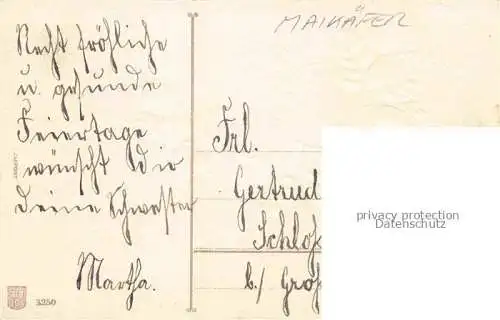 MAIKÄFER
Recht fröhliche
u. gesunde
Feiertage
wünscht dir
deine Schwester
Martha.
Frl.
Gertrud
Schloß
b./ Groß
privacy protection
Datenschutz
3250